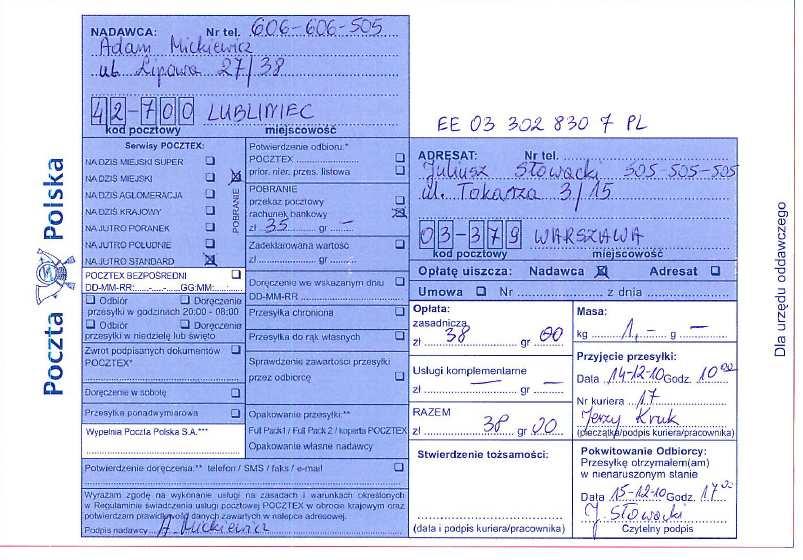 NADAWCA: Nr tel. 606-606-505
Adam Mickiewicz
ul. Lipowa 27/38
42-700 LUBLINIEC
kod pocztowy miejscowość
EE 03 302 830 7 PL
Poczta Polska
Serwisy POCZTEX:
NA DZIŚ MIEJSKI SUPER
NA DZIŚ MIEJSKI
NA DZIŚ AGLOMERACJA
NA DZIŚ KRAJOWY
NA JUTRO PORANEK
NA JUTRO POŁUDNIE
NA JUTRO STANDARD
POBRANIE
POCZTEX BEZPOŚREDNI
DD-MM-RR:......-......-...... GG:MM:......:......
Odbiór Doręczenie
przesyłki w godzinach 20:00 - 08:00
Odbiór Doręczenie
przesyłki w niedzielę lub święto
Zwrot podpisanych dokumentów
POCZTEX*
Doręczenie w sobotę
Przesyłka ponadwymiarowa
Wypełnia Poczta Polska S.A.***
Potwierdzenie odbioru:*
POCZTEX
prior. nier. przes. listowa
POBRANIE
przekaz pocztowy
rachunek bankowy
zł 35 gr –
Zadeklarowana wartość
zł gr
Doręczenie we wskazanym dniu
DD-MM-RR
Przesyłka chroniona
Przesyłka do rąk własnych
Sprawdzenie zawartości przesyłki
przez odbiorcę
Opakowanie przesyłki:**
Full Pack1 / Full Pack 2 / koperta POCZTEX
Opakowanie własne nadawcy
Potwierdzenie doręczenia:** telefon / SMS / faks / e-mail
Wyrażam zgodę na wykonanie usługi na zasadach i warunkach określonych
w Regulaminie świadczenia usługi pocztowej POCZTEX w obrocie krajowym oraz
potwierdzam prawidłowość danych zawartych w nalepce adresowej.
Podpis nadawcy A. Mickiewicz
ADRESAT: Nr tel.
Juliusz Słowacki 505-505-505
ul. Tokarza 3/15
03-379 WARSZAWA
kod pocztowy miejscowość
Opłatę uiszcza: Nadawca Adresat
Umowa Nr z dnia
Opłata:
zasadnicza
zł 38 gr 00
Usługi komplementarne
zł – gr –
RAZEM
zł 38 gr 00
Stwierdzenie tożsamości:
(data i podpis kuriera/pracownika)
Masa:
kg 1,- g –
Przyjęcie przesyłki:
Data 14-12-10 Godz. 10 00
Nr kuriera 17
Jerzy Kruk
(pieczątka/podpis kuriera/pracownika)
Pokwitowanie Odbiorcy:
Przesyłkę otrzymałem(am)
w nienaruszonym stanie
Data 15-12-10 Godz. 17 00
J. Słowacki
Czytelny podpis
Dla urzędu oddawczego